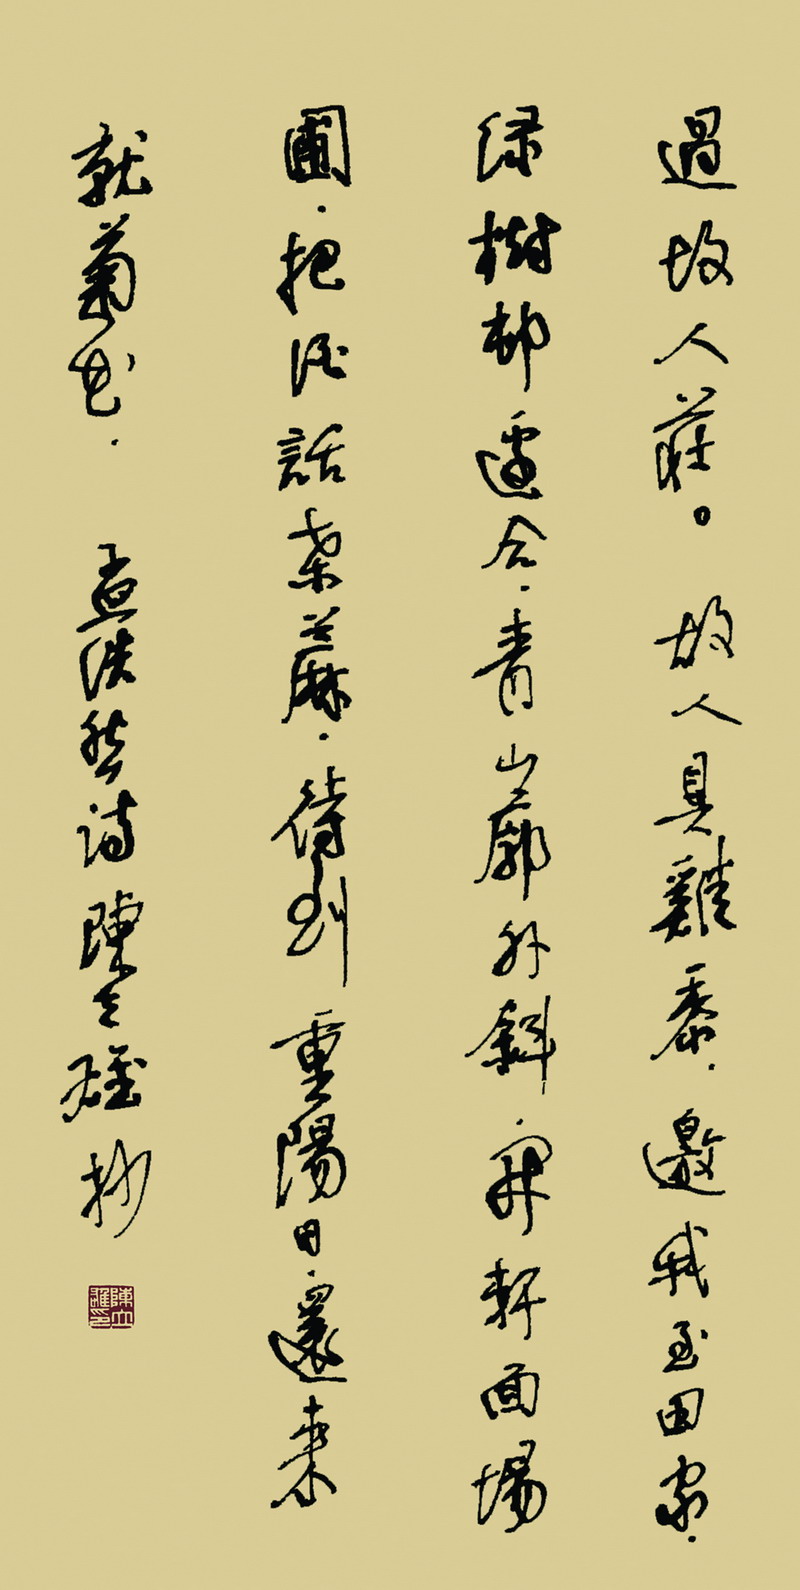 過故人莊。故人具雞黍.邀我至田家.
綠樹邨邊合.青山廓外斜.開軒面場
圃.把酒話桑蔴.待到重陽日.還來
就菊花.孟浩然詩陳立雄抄
陳立雄印